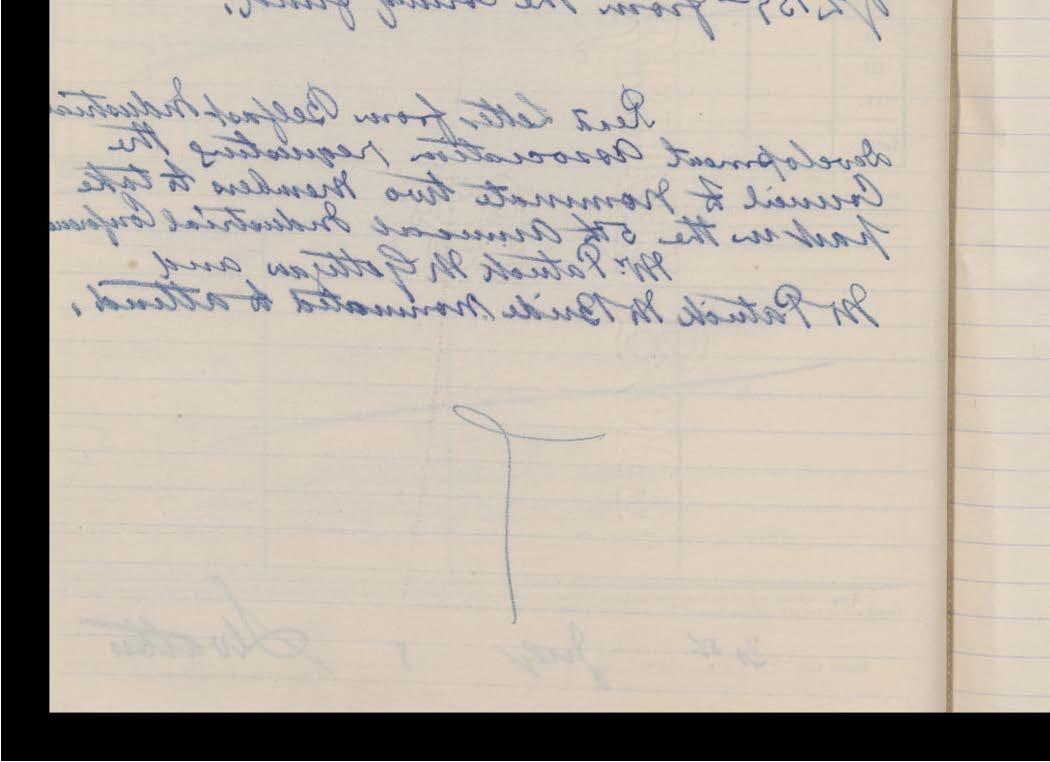 from the County fund.
Read letter from Belfast Industrial
Development Association requesting the
Council to nominate two members to take
part in the 5th annual Industrial Conference
Mr. Patrick McGettigan and
Mr Patrick McBride nominated to attend.
July